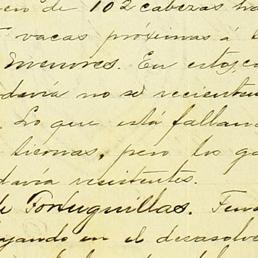 de 102 cabezas ha
vacas próximas á
menores. En estos
davía no se recienten
Lo que está fallan
tiernas, pero los ga
davía resistentes.
de Tortuguillas. Fue
yando en el desasolve